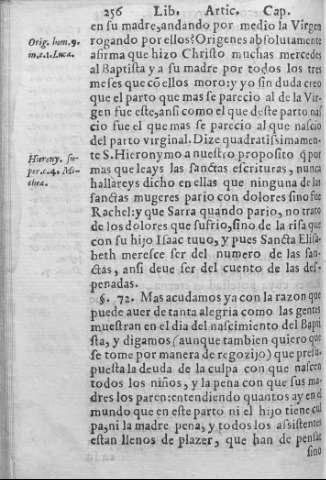 256 Lib. Artic. Cap.
en su madre, andando por medio la Virgen
rogando por ellos? Origenes absolutamente
Orig. hom. 9.
in. c. 1. Luca.
afirma que hizo Christo muchas mercedes
al Baptista y a su madre por todos los tres
meses que cõ ellos moro: y yo sin duda creo
que el parto que mas se parecio al de la Vir-
gen fue este, ansi como el que deste parto na-
cio fue el que mas se parecio al que nascio
del parto virginal. Dize quadratissimamen-
te S. Hieronymo a nuestro proposito q̃ por
Hierony. su-
per. c. 4. Mi-
chea.
mas que leays las sanctas escrituras, nunca
hallareys dicho en ellas que ninguna de las
sanctas mugeres pario con dolores sino fue
Rachel: y que Sarra quando pario, no trato
de los dolores que sufrio, sino de la risa que
con su hijo Isaac tuuo, y pues Sancta Elisa-
beth meresce ser del numero de las san-
ctas, ansi deue ser del cuento de las des-
penadas.
§. 72. Mas acudamos ya con la razon que
puede auer de tanta alegria como las gentes
muestran en el dia del nascimiento del Bapti
sta, y digamos (aunque tambien quiero que
se tome por manera de regozijo) que presu-
puesta la deuda de la culpa con que nascen
todos los niños, y la pena con que sus ma-
dres los paren: entendiendo quantos ay en el
mundo que en este parto ni el hijo tiene cul
pa, ni la madre pena, y todos los assistentes
estan llenos de plazer, que han de pensar
sino